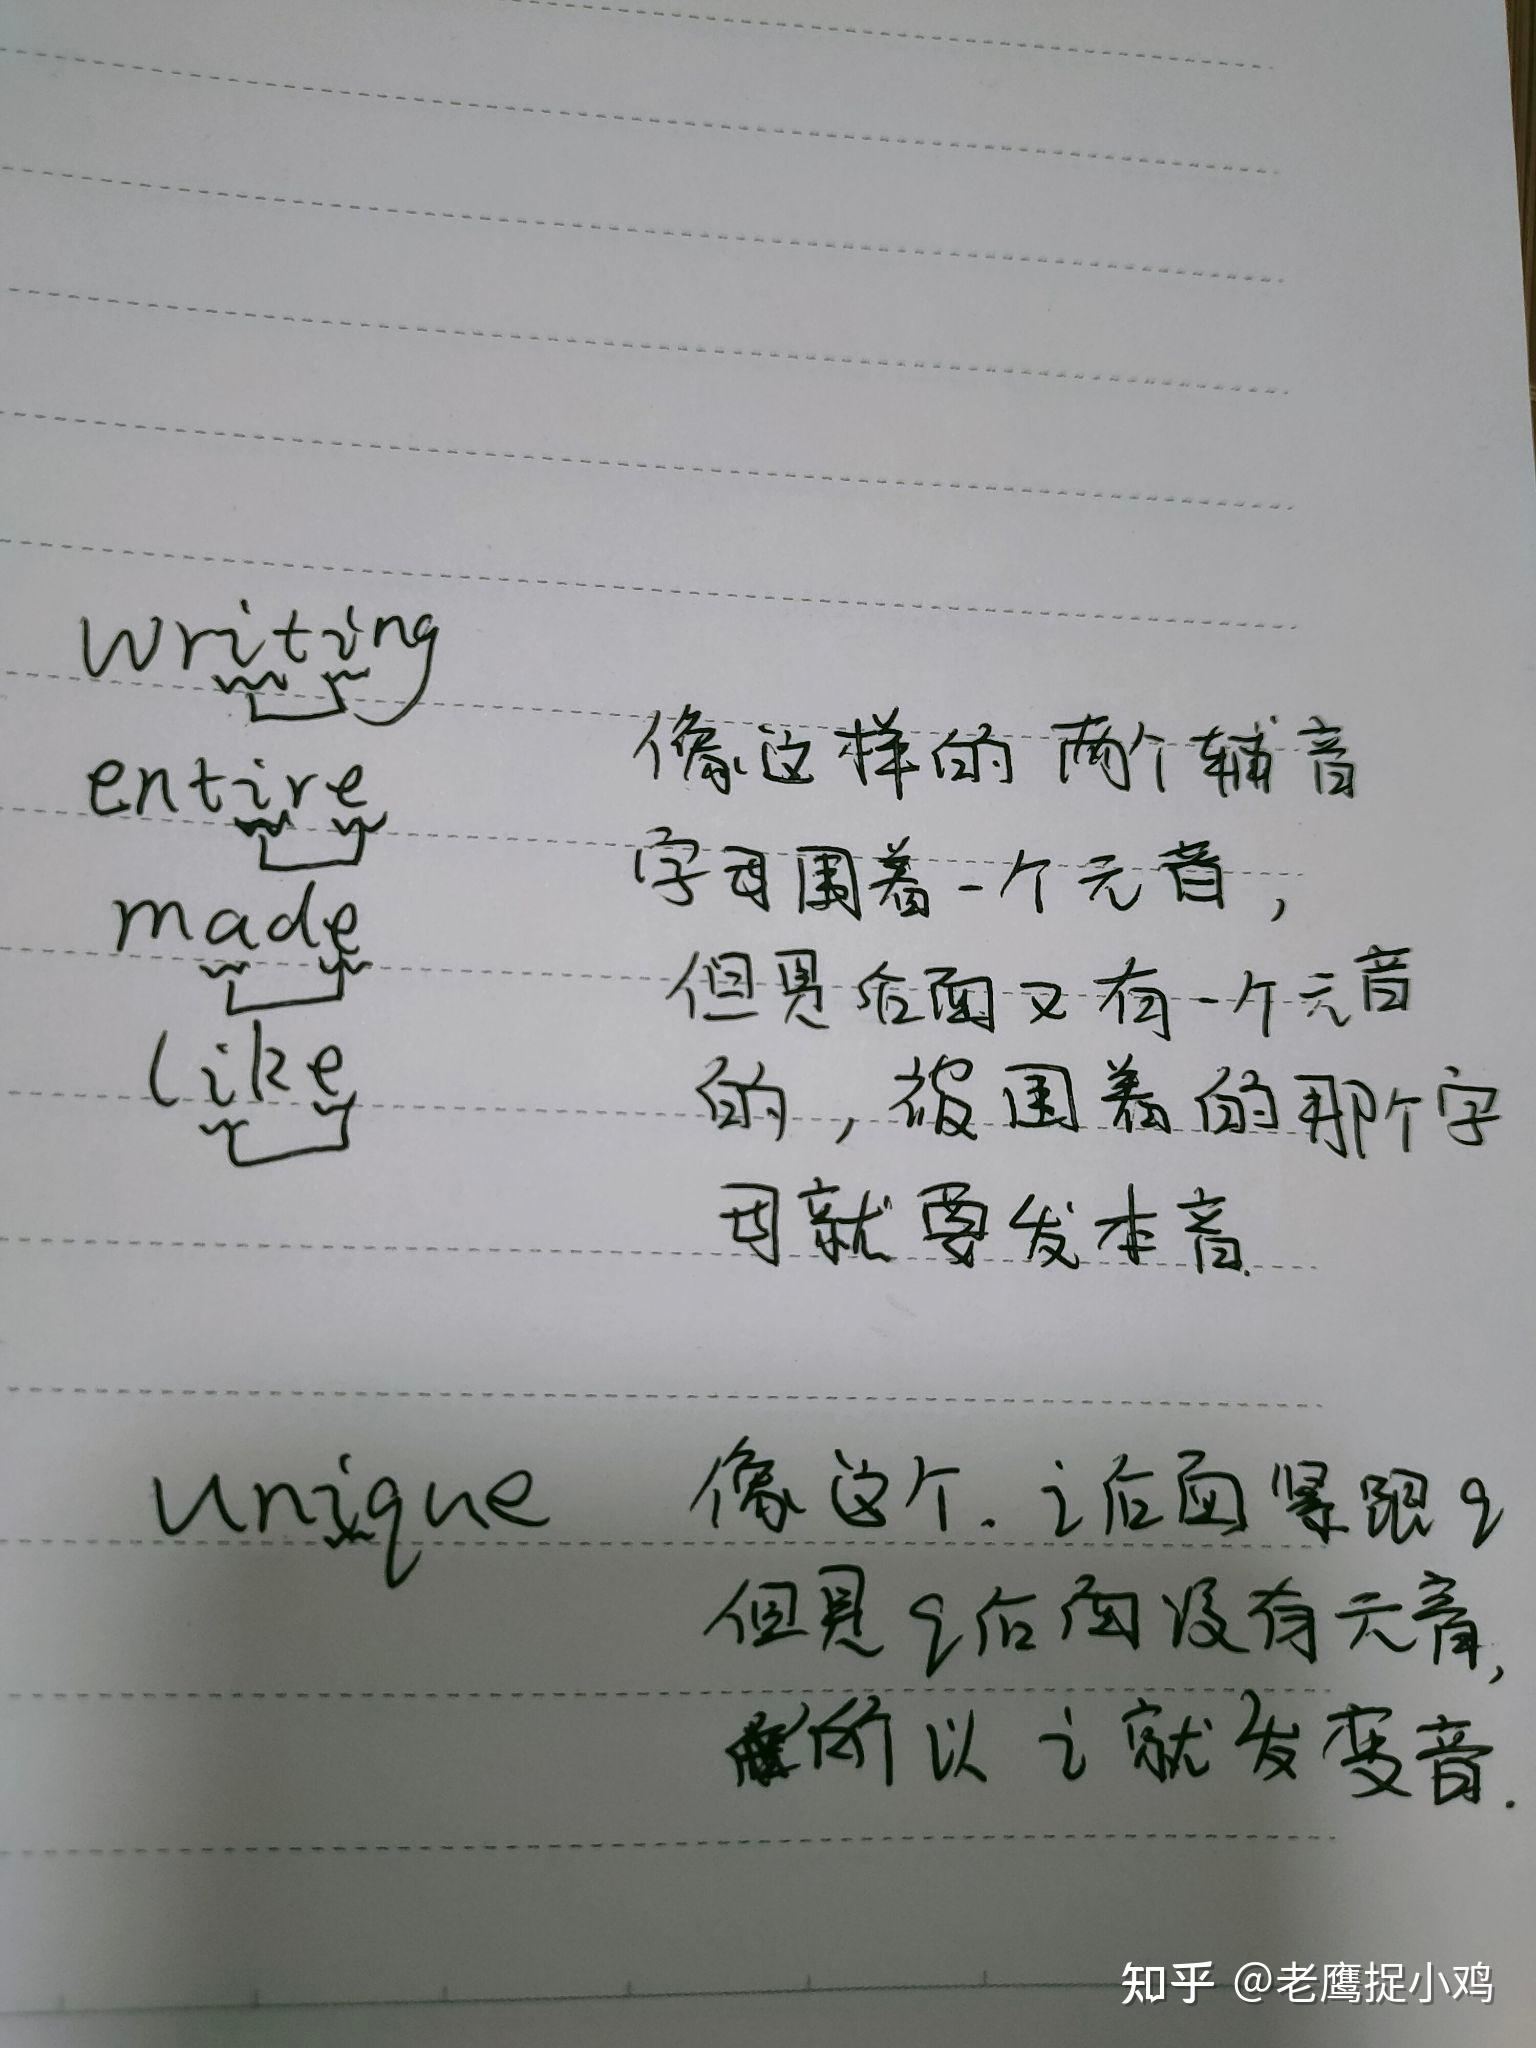 writing
entire
made
like
像这样的两个辅音
字母围着一个元音，
但是后面又有一个元音
的，被围着的那个字
母就要发本音.
unique
像这个. i后面紧跟q
但是q后面没有元音,
所以i就发变音.
知乎 @老鹰捉小鸡